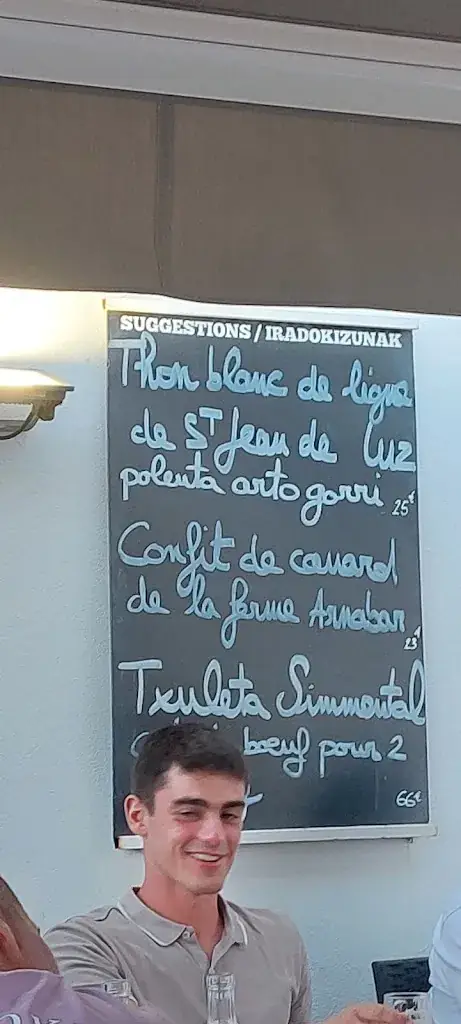 SUGGESTIONS / IRADOKIZUNAK
Thon blanc de ligne
de ST Jean de Luz
polenta arto gorri 25€
Confit de canard
de la ferme Arnabar
23€
Txuleta Simmental
boeuf pour 2
66€